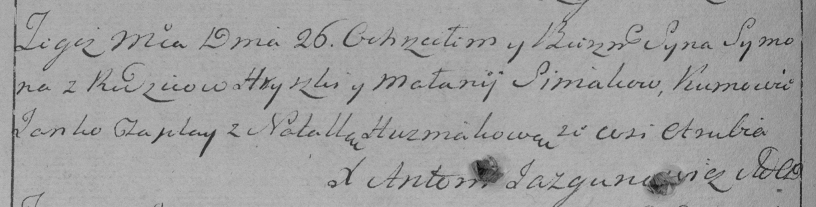 Tegoż Mca Dnia 26. Ochrzciłem y Bierzm Syna Symo
na z Rodzicow Hryszki y Małanij Simakow, Kumowie
Janko Czaplay z Natallą Huzmakową ze wsi
X Antoni Jazgunowicz